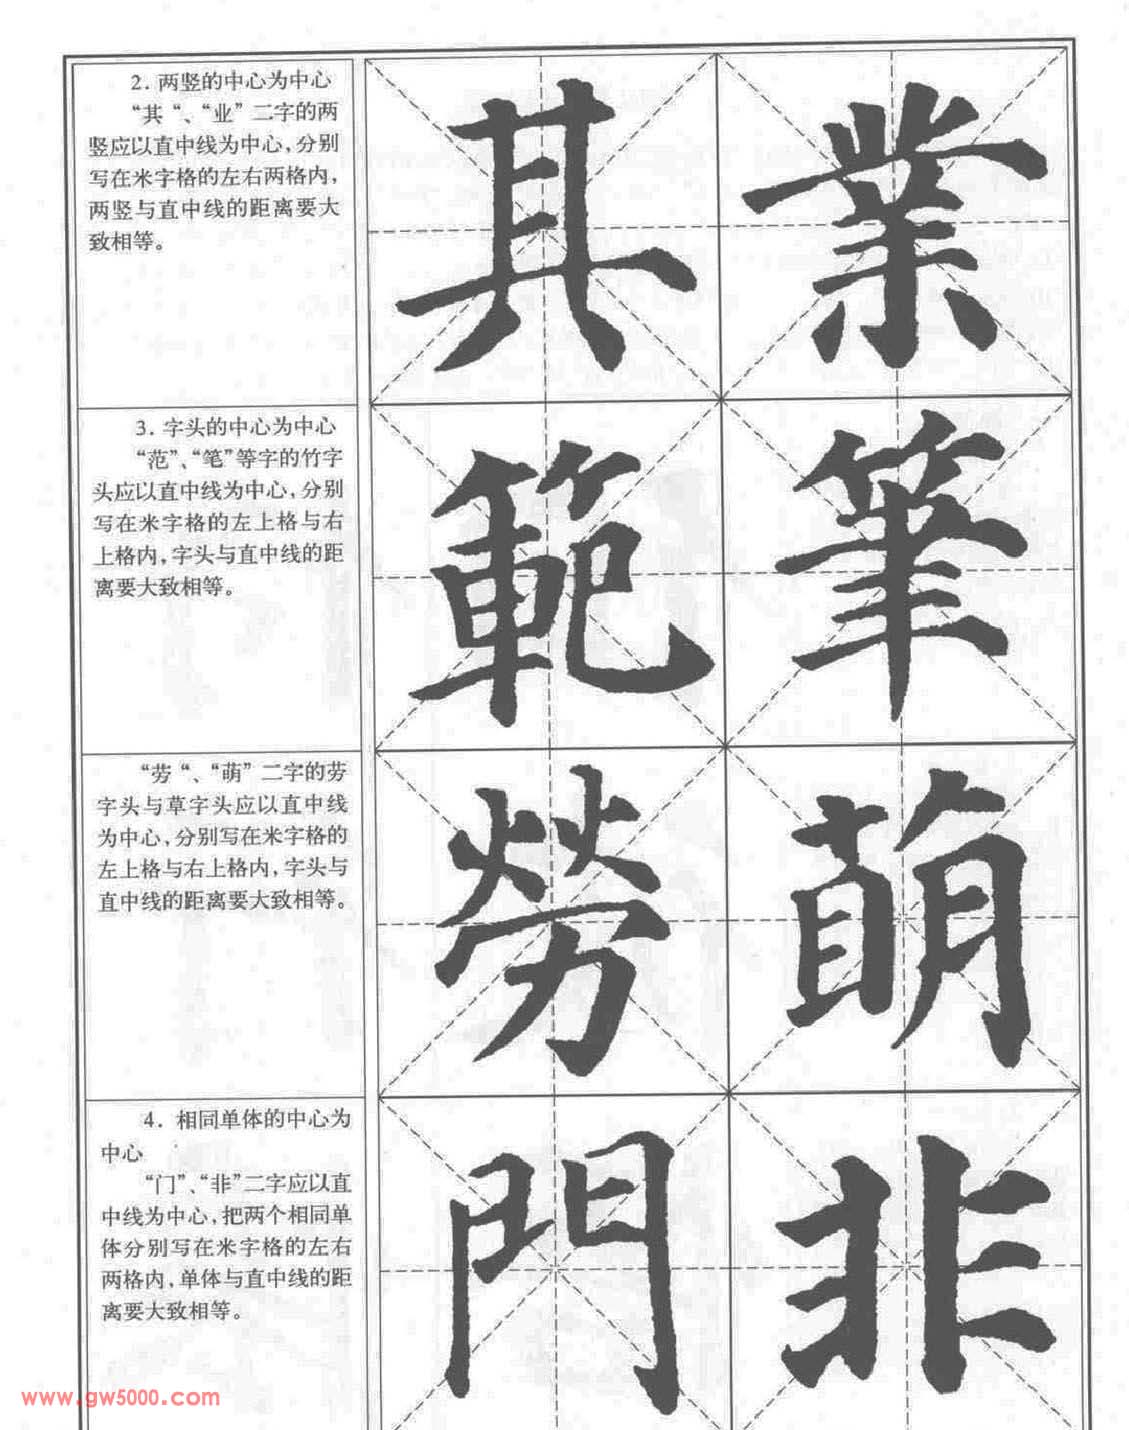 2. 两竖的中心为中心
“其“、“业”二字的两
竖应以直中线为中心,分别
写在米字格的左右两格内,
两竖与直中线的距离要大
致相等。
其 業
3. 字头的中心为中心
“范”、“笔”等字的竹字
头应以直中线为中心,分别
写在米字格的左上格与右
上格内,字头与直中线的距
离要大致相等。
範 筆
“劳“、“萌”二字的劳
字头与草字头应以直中线
为中心,分别写在米字格的
左上格与右上格内,字头与
直中线的距离要大致相等。
勞 萌
4. 相同单体的中心为
中心
“门”、“非”二字应以直
中线为中心,把两个相同单
体分别写在米字格的左右
两格内,单体与直中线的距
离要大致相等。
門 非
www.gw5000.com